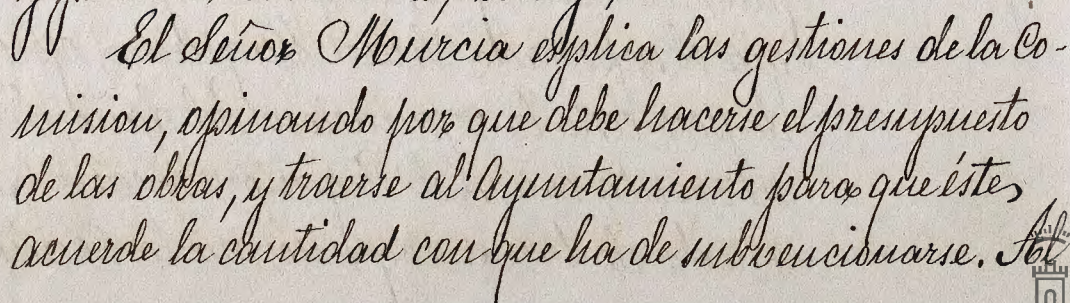 El Señor Murcia esplica las gestiones de la Co-
mision, opinando por que debe hacerse el presupuesto
de las obras, y traerse al Ayuntamiento para que éste,
acuerde la cantidad con que ha de subvencionarse. Al